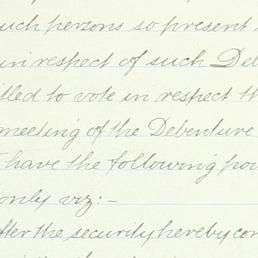 such persons so present
in respect of such Deb
itled to vote in respect th
meeting of the Debenture
have the following pow
only viz:-
After the security hereby con